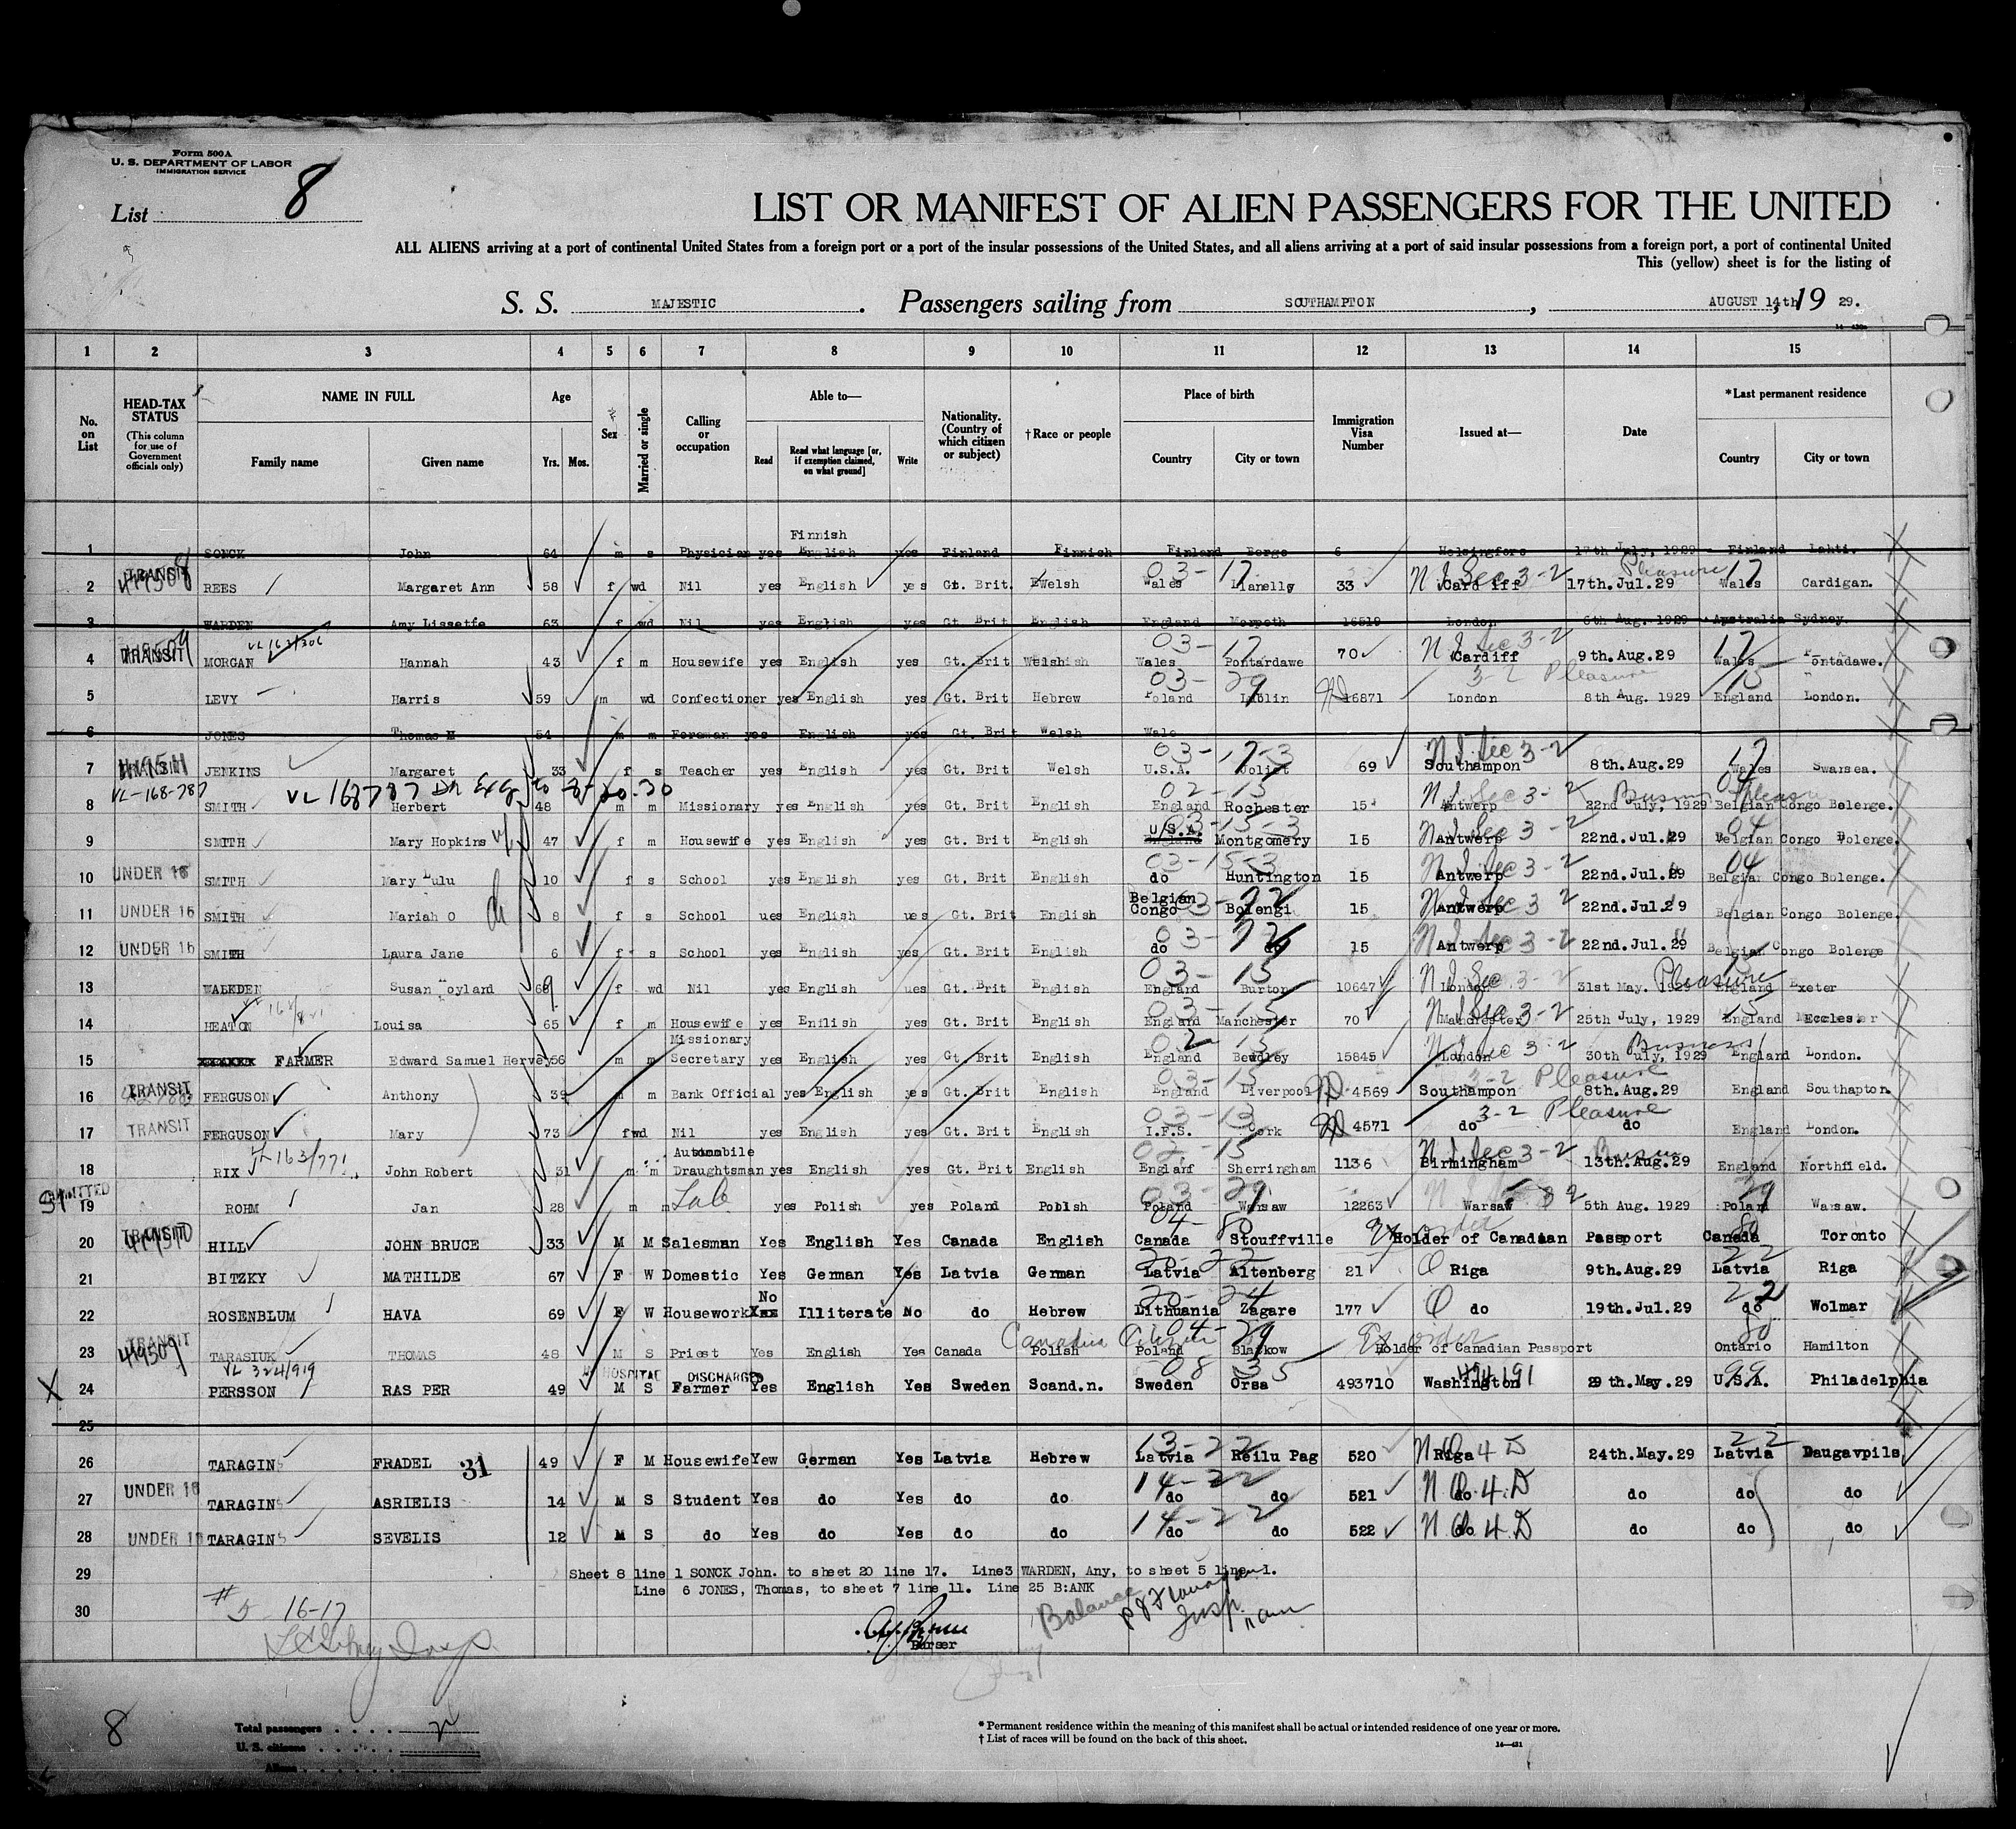 Form 500A
U. S. DEPARTMENT OF LABOR
IMMIGRATION SERVICE
List 8
LIST OR MANIFEST OF ALIEN PASSENGERS FOR THE UNITED
ALL ALIENS arriving at a port of continental United States from a foreign port or a port of the insular possessions of the United States, and all aliens arriving at a port of said insular possessions from a foreign port, a port of continental United
This (yellow) sheet is for the listing of
S. S. MAJESTIC. Passengers sailing from SOUTHAMPTON, AUGUST 14th, 19 29.
1 2 3 4 5 6 7 8 9 10 11 12 13 14 15
No. on List
HEAD-TAX STATUS (This column for use of Government officials only)
NAME IN FULL Family name Given name
Age Yrs. Mos.
Sex
Married or single
Calling or occupation
Able to— Read Read what language [or, if exemption claimed, on what ground] Write
Nationality. (Country of which citizen or subject)
† Race or people
Place of birth Country City or town
Immigration Visa Number
Issued at—
Date
* Last permanent residence Country City or town
Finnish
1 SONCK John 64 m s Physician yes English yes Finland Finnish Finland Borgo 6 Helsingfors 17th July, 1929 Finland Lahti.
2 TRANSIT REES Margaret Ann 58 f wd Nil yes English yes Gt. Brit. Welsh Wales Llanelly 33 Cardiff 17th.Jul.29 Wales Cardigan.
03-17 N I Sec 3-2 Pleasure 17
3 WARDEN Amy Lissette 63 f wd Nil yes English yes Gt. Brit English England Morpeth 16519 London 6th Aug. 1929 Australia Sydney.
4 TRANSIT MORGAN Hannah 43 f m Housewife yes English yes Gt. Brit Welshish Wales Pontardawe 70 Cardiff 9th.Aug.29 Wales Pontadawe.
03-17 N I Sec 3-2 17
5 LEVY Harris 59 m wd Confectioner yes English yes Gt. Brit Hebrew Poland Lublin 16871 London 8th Aug. 1929 England London.
03-29 3-2 Pleasure 15
6 JONES Thomas H 54 m m Foreman yes English yes Gt. Brit Welsh Wale
7 JENKINS Margaret 33 f s Teacher yes English yes Gt. Brit Welsh U.S.A. Joliet 69 Southampon 8th.Aug.29 Wales Swarsea.
03-17-3 N I Sec 3-2 17
VL-168-787
8 SMITH Herbert 48 m m Missionary yes English yes Gt. Brit English England Rochester 15 Antwerp 22nd July, 1929 Belgian Congo Bolenge.
02-15
9 SMITH Mary Hopkins 47 f m Housewife yes English yes Gt. Brit English U.S.A. England Montgomery 15 Antwerp 22nd.Jul.29 Belgian Congo Bolenge.
03-15-3 N I Sec 3-2 04
10 UNDER 16 SMITH Mary Lulu 10 f s School yes English yes Gt. Brit English do Huntington 15 Antwerp 22nd.Jul.29 Belgian Congo Bolenge.
03-15-3 N I Sec 3-2 04
11 UNDER 16 SMITH Mariah O 8 f s School ues English ues Gt. Brit English Belgian Congo Bolengi 15 Antwerp 22nd.Jul.29 Belgian Congo Bolenge.
12 UNDER 16 SMITH Laura Jane 6 f s School yes English yes Gt. Brit English do do 15 Antwerp 22nd.Jul.29 Belgian Congo Bolenge
13 WALKDEN Susan Hoyland 69 f wd Nil yes English ues Gt. Brit English England Burton 10647 London 31st May. 1929 England Exeter
03-15 N I Sec 3-2 Pleasure 15
14 HEATON Louisa 65 f m Housewife yes Enflish yes Gt. Brit English England Manchester 70 Manchester 25th July, 1929 England Eccles.
03-15 N I Sec 3-2 15
15 FARMER Edward Samuel Hervey 56 m m Missionary Secretary yes English yes Gt. Brit English England Bewdley 15845 London 30th July, 1929 England London.
Business
16 TRANSIT FERGUSON Anthony 39 m m Bank Official yes English yes Gt. Brit English England Liverpool 4569 Southampon 8th.Aug.29 England Southapton.
03-15 3-2 Pleasure
17 TRANSIT FERGUSON Mary 73 f wd Nil yes English yes Gt. Brit English I.F.S. Cork 4571 do do England London.
03-13 3-2 Pleasure
18 RIX John Robert 31 m m Automobile Draughtsman yes English yes Gt. Brit English Englanf Sherringham 1136 Birmingham 13th.Aug.29 England Northfield.
02-15 N I Sec 3-2
19 ROHM Jan 28 m m yes Polish yes Poland Poblsh Poland Warsaw 12263 Warsaw 5th Aug. 1929 Poland Warsaw.
03-29
20 TRANSIT HILL JOHN BRUCE 33 M M Salesman Yes English Yes Canada English Canada Stouffville Holder of Canadian Passport Canada Toronto
04-80
21 BITZKY MATHILDE 67 F W Domestic Yes German Yes Latvia German Latvia Altenberg 21 Riga 9th.Aug.29 Latvia Riga
20-22 22
22 ROSENBLUM HAVA 69 F W Housework No Illiterate No do Hebrew Lithuania Zagare 177 do 19th.Jul.29 do Wolmar
20-24 22
23 TRANSIT 419509 TARASIUK THOMAS 48 M S Priest Yes English Yes Canada Polish Poland Blaskow Holder of Canadian Passport Ontario Hamilton
Canadian Citizen 04-29 Ex order 80
VL 324/919 HOSPITAL DISCHARGED
24 PERSSON RAS PER 49 M S Farmer Yes English Yes Sweden Scand.n. Sweden Orsa 493710 Washington 29th.May.29 U.S.A. Philadelphia
08 35 99
25
26 TARAGIN FRADEL 31 49 F M Housewife Yew German Yes Latvia Hebrew Latvia Reilu Pag 520 Riga 24th.May.29 Latvia Daugavpils
13-22 N Q 4 D 22
27 UNDER 16 TARAGIN ASRIELIS 14 M S Student Yes do Yes do do do do 521 do do do do
14-22 N Q 4 D
28 UNDER 16 TARAGIN SEVELIS 12 M S do Yes do Yes do do do do 522 do do do do
14-22 N Q 4 D
29 Sheet 8 line 1 SONCK John. to sheet 20 line 17. Line3 WARDEN, Any, to sheet 5 line 1.
Line 6 JONES, Thomas, to sheet 7 line 11. Line 25 B:ANK
30
# 5 16-17
Balance
Insp.
Purser
8
Total passengers
U. S. citizens
Aliens
* Permanent residence within the meaning of this manifest shall be actual or intended residence of one year or more.
† List of races will be found on the back of this sheet.